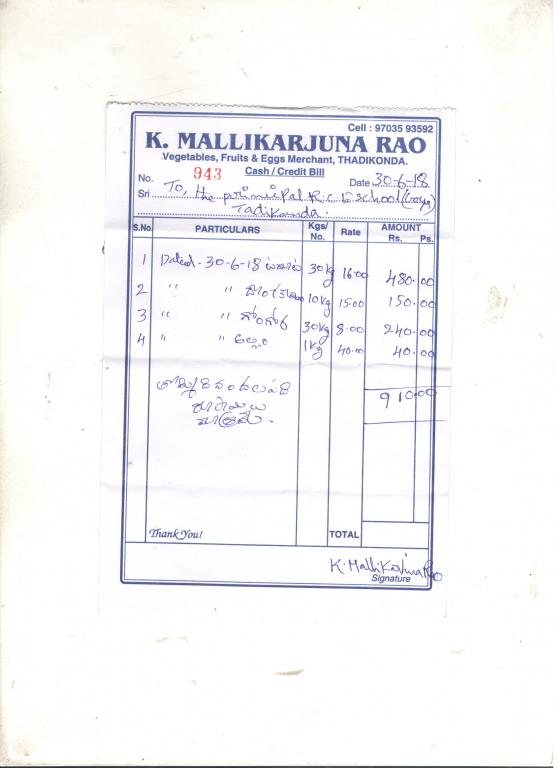 Cell : 97035 93592
K. MALLIKARJUNA RAO
Vegetables, Fruits & Eggs Merchant, THADIKONDA.
Cash / Credit Bill
No. 943 Date 30-6-18
Sri To, the principal school
Tadikonda.
S.No. PARTICULARS Kgs/ No. Rate AMOUNT Rs. Ps.
1 Dated - 30-6-18 30 kg 16.00 480.00
2 " " 10 kg 15.00 150.00
3 " " గోంగూర 30kg 8.00 240.00
4 " " అల్లం 1kg 40.00 40.00
910.00
Thank You! TOTAL
K. Mallikarjuna Rao
Signature